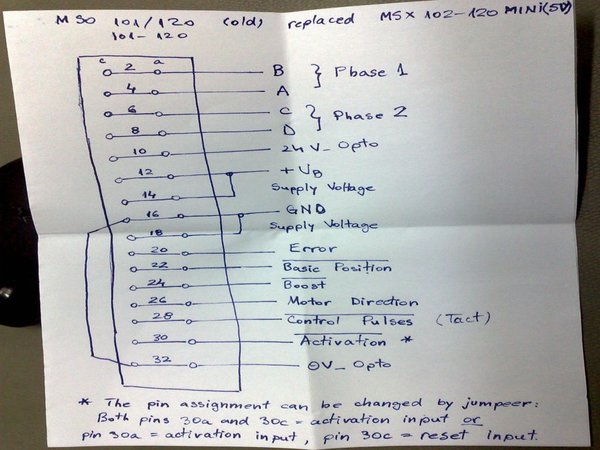 MSO 101/120 (old) replaced MSX 102-120 MINI(5V)
101-120
c a
2 B } Phase 1
4 A
6 C } Phase 2
8 D
10 24 V_ Opto
12 + UB
14 Supply Voltage
16 GND
18 Supply Voltage
20 Error
22 Basic Position
24 Boost
26 Motor Direction
28 Control Pulses (Tact)
30 Activation *
32 0V_ Opto
* The pin assignment can be changed by jumpeer:
Both pins 30a and 30c = activation input or
pin 30a = activation input, pin 30c = reset input.